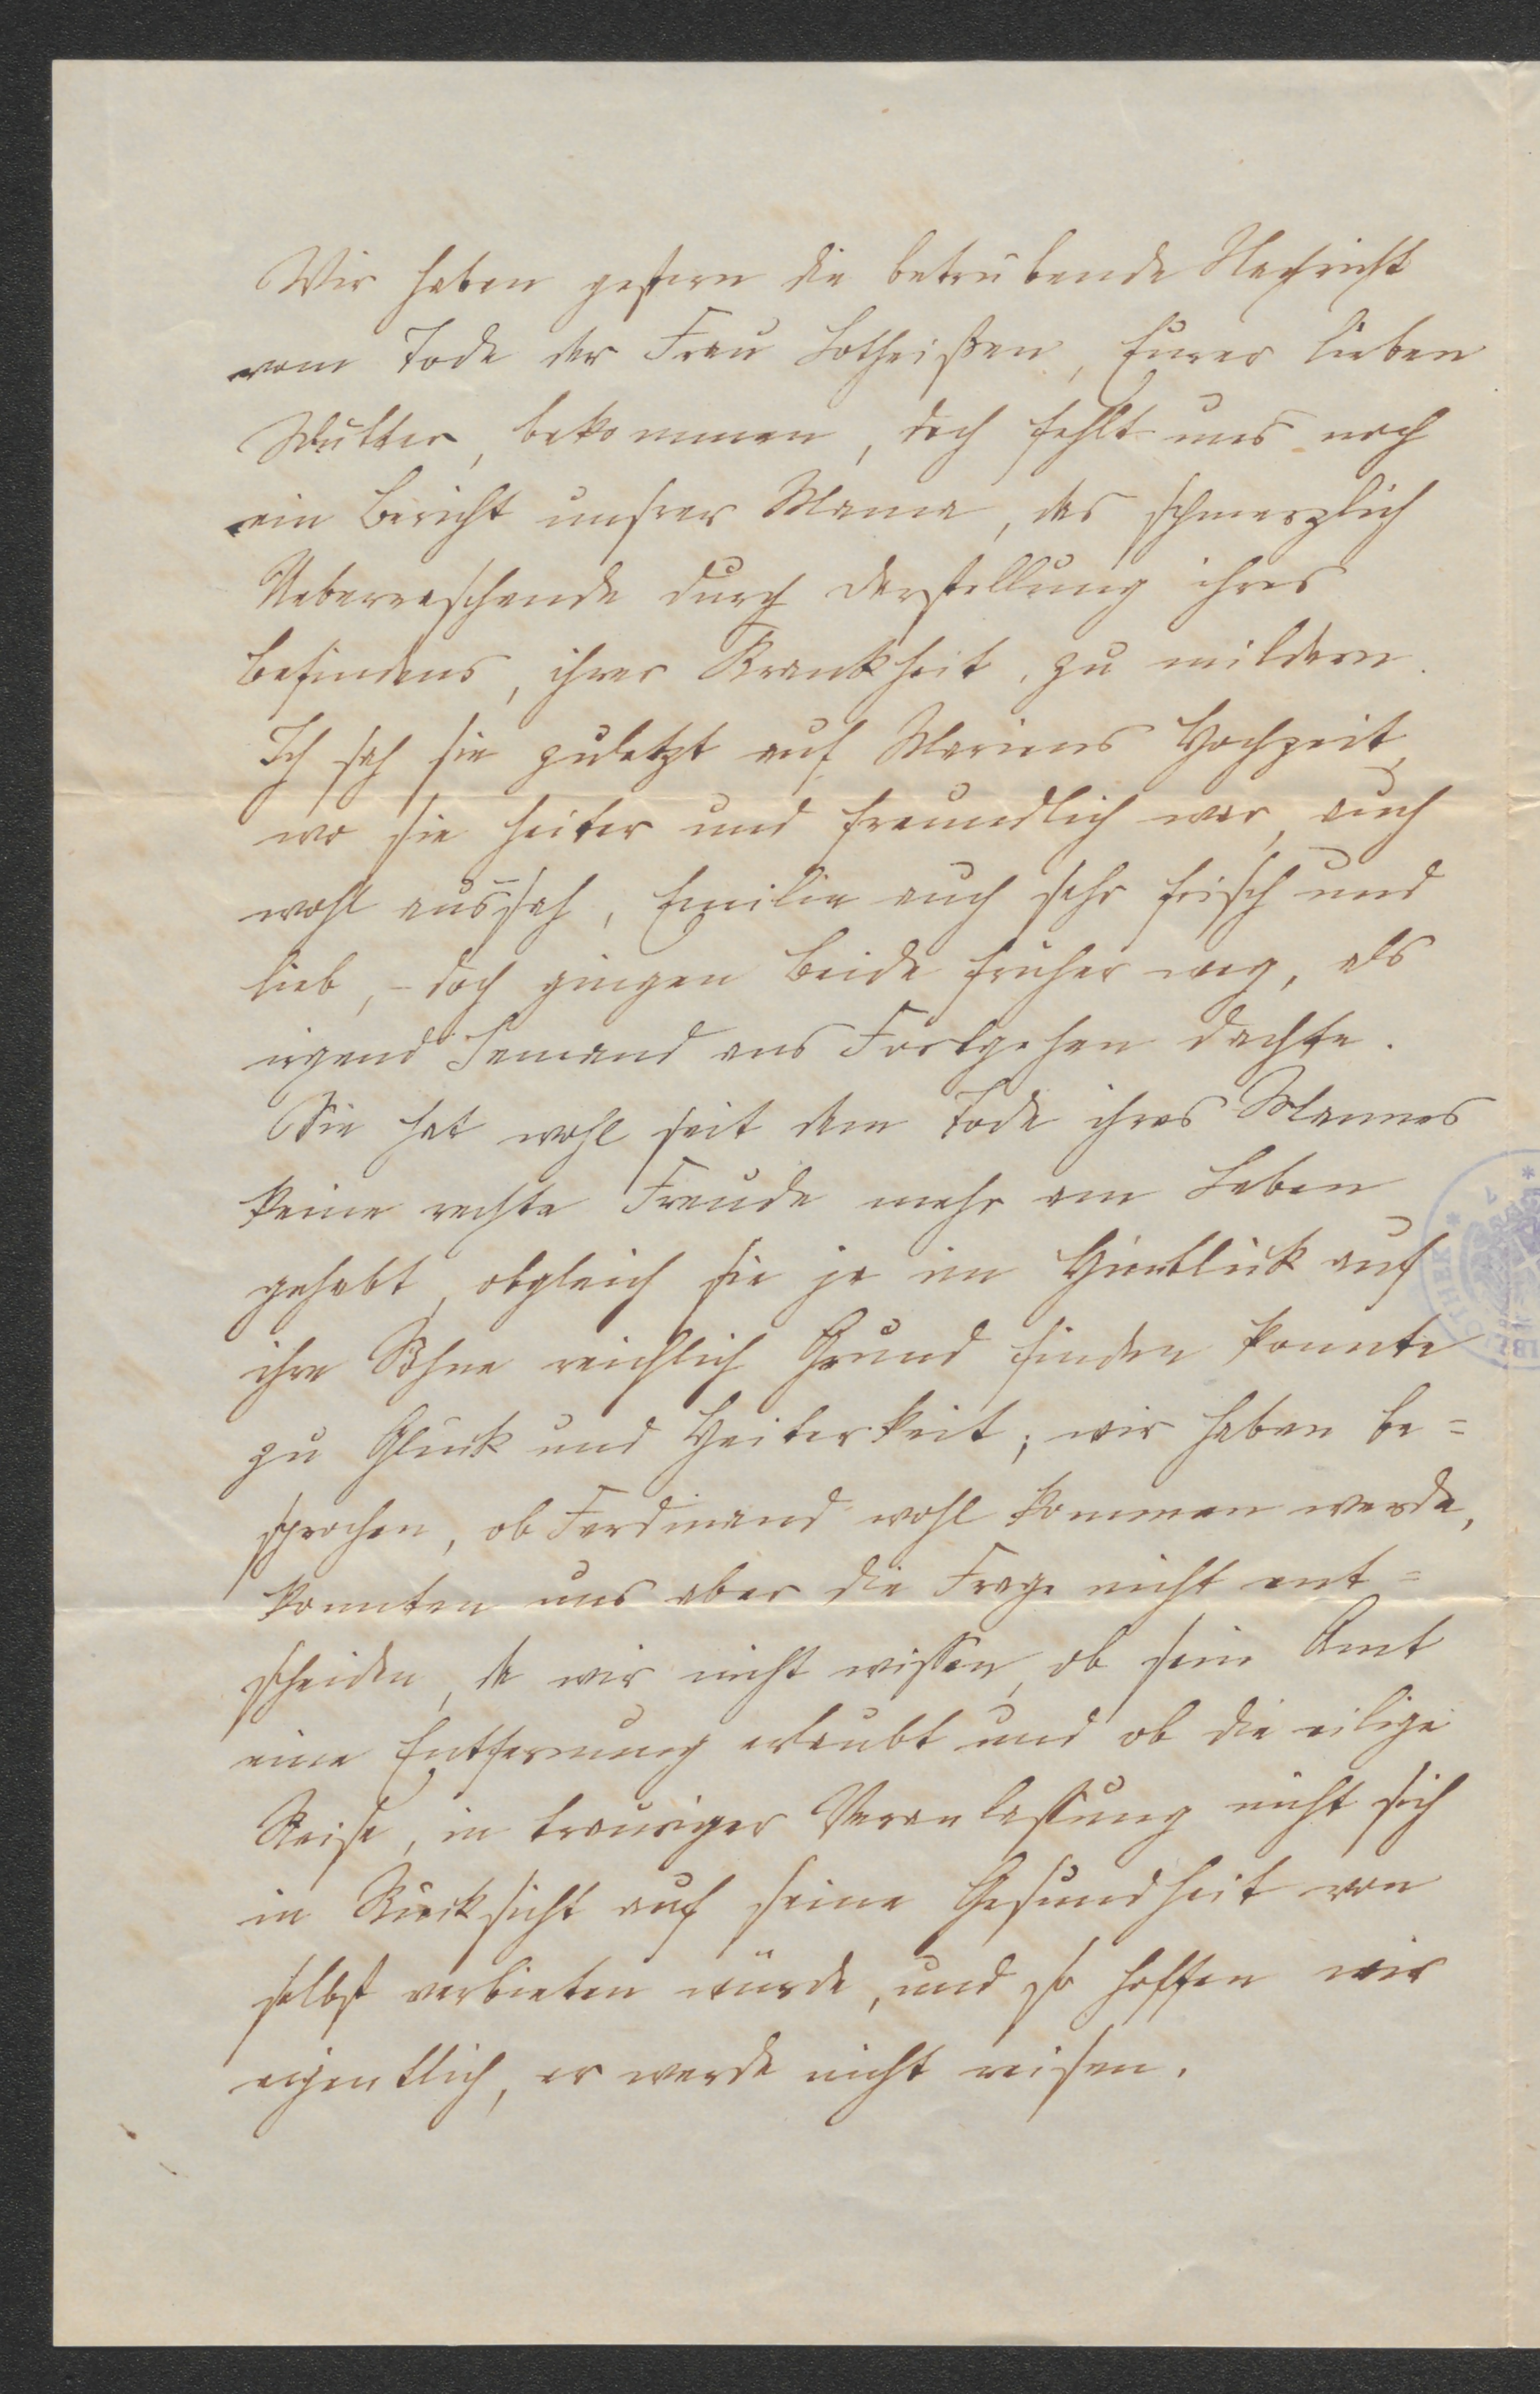 Wir haben gestern die betrübende Nachricht
vom Tode der Frau Lotheißen, Eurer lieben
Mutter, bekommen, doch fehlt uns noch
ein Bericht unsrer Mama, das schmerzlich
Ueberraschende durch Darstellung ihres
Befindens, ihrer Krankheit, zu mildern.
Ich sah sie zuletzt auf Mariens Hochzeit,
wo sie heiter und freundlich war, auch
wohl aussah, Emilie auch sehr frisch und
lieb, – doch gingen Beide früher weg, als
irgend Jemand ans Fortgehen dachte.
Sie hat wohl seit dem Tode ihres Mannes
keine rechte Freude mehr am Leben
gehabt, obgleich sie ja im Hinblick auf
ihre Söhne reichlich Grund finden konnte
zu Glück und Heiterkeit; wir haben be=
sprochen, ob Ferdinand wohl kommen werde,
konnten uns aber die Frage nicht ent=
scheiden, da wir nicht wissen, ob sein Amt
eine Entfernung erlaubt und ob die eilige
Reise, in trauriger Veranlassung nicht sich
in Rücksicht auf seine Gesundheit von
selbst verbieten würde, und so hoffen wir
eigentlich, er werde nicht reisen.